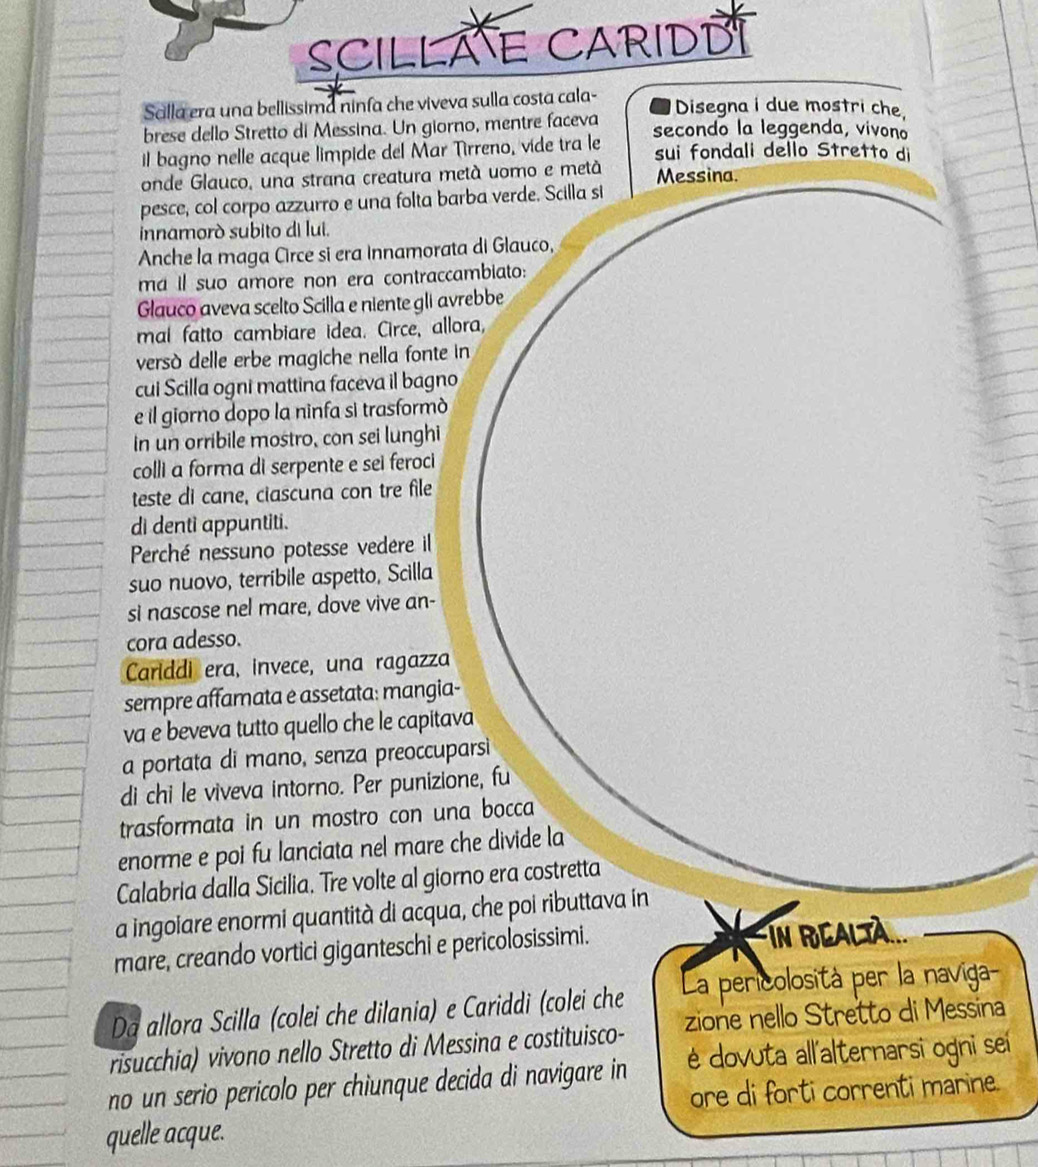 SCILLA E CARIDDI
Scilla era una bellissima ninfa che viveva sulla costa cala-
brese dello Stretto di Messina. Un giorno, mentre faceva
il bagno nelle acque limpide del Mar Tirreno, vide tra le
onde Glauco, una strana creatura metà uomo e metà
pesce, col corpo azzurro e una folta barba verde. Scilla si
innamorò subito di lui.
Anche la maga Circe si era innamorata di Glauco,
ma il suo amore non era contraccambiato:
Glauco aveva scelto Scilla e niente gli avrebbe
mai fatto cambiare idea. Circe, allora,
versò delle erbe magiche nella fonte in
cui Scilla ogni mattina faceva il bagno
e il giorno dopo la ninfa si trasformò
in un orribile mostro, con sei lunghi
colli a forma di serpente e sei feroci
teste di cane, ciascuna con tre file
di denti appuntiti.
Perché nessuno potesse vedere il
suo nuovo, terribile aspetto, Scilla
si nascose nel mare, dove vive an-
cora adesso.
Cariddi era, invece, una ragazza
sempre affamata e assetata: mangia-
va e beveva tutto quello che le capitava
a portata di mano, senza preoccuparsi
di chi le viveva intorno. Per punizione, fu
trasformata in un mostro con una bocca
enorme e poi fu lanciata nel mare che divide la
Calabria dalla Sicilia. Tre volte al giorno era costretta
a ingoiare enormi quantità di acqua, che poi ributtava in
mare, creando vortici giganteschi e pericolosissimi.
Da allora Scilla (colei che dilania) e Cariddi (colei che
risucchia) vivono nello Stretto di Messina e costituisco-
no un serio pericolo per chiunque decida di navigare in
quelle acque.
Disegna i due mostri che,
secondo la leggenda, vivono
sui fondali dello Stretto di
Messina.
IN REALTÀ...
La pericolosità per la naviga-
zione nello Stretto di Messina
è dovuta all'alternarsi ogni sei
ore di forti correnti marine.